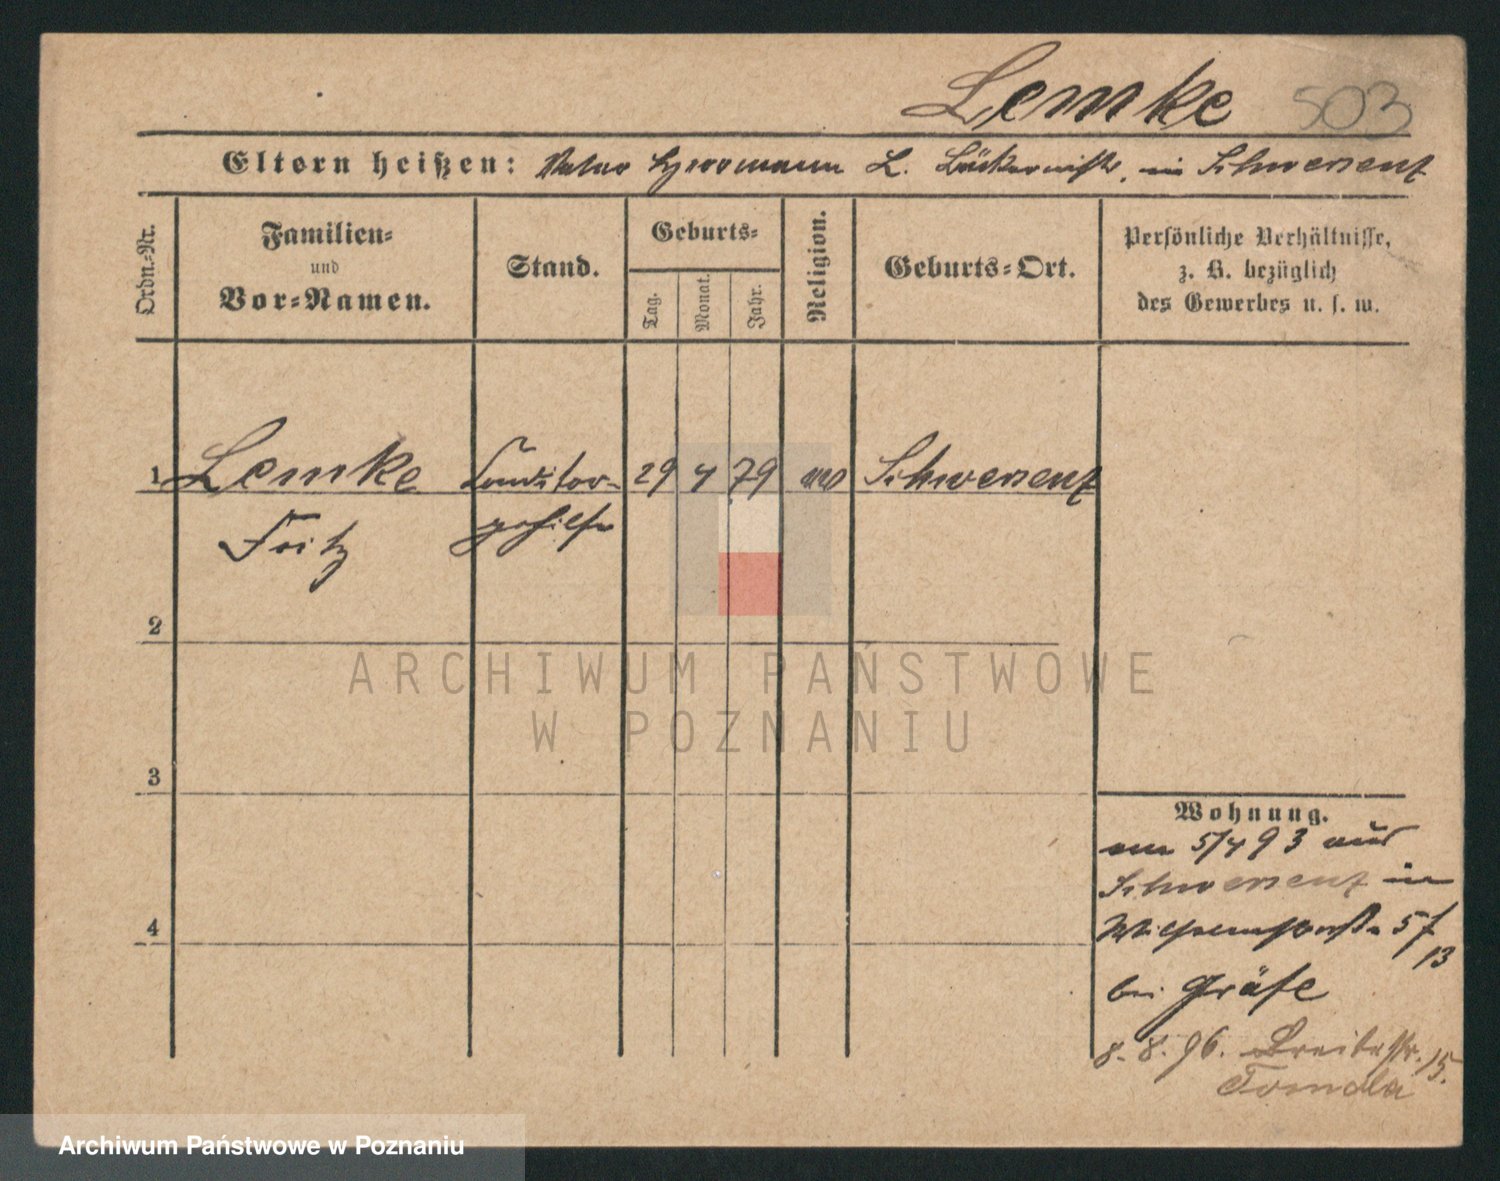 Lemke 503
Eltern heißen: Vater Herrmann L. Bäckermstr. in Schwersenz
Ordn.-Nr.
Familien-
und
Vor-Namen.
Stand.
Geburts-
Tag.
Monat.
Jahr.
Religion.
Geburts-Ort.
Persönliche Verhältnisse,
z. B. bezüglich
des Gewerbes u. s. w.
1 Lemke Conditor- 29 4 79 Schwersenz
Fritz gehilfe
2
ARCHIWUM PAŃSTWOWE
W POZNANIU
3
Wohnung.
am 5/4 93 aus
Schwersenz in
4
Wilhelmstraße 5 /
13
bei Gräfe
8. 8. 96. Breitestr. 15.
Tomola
Archiwum Państwowe w Poznaniu